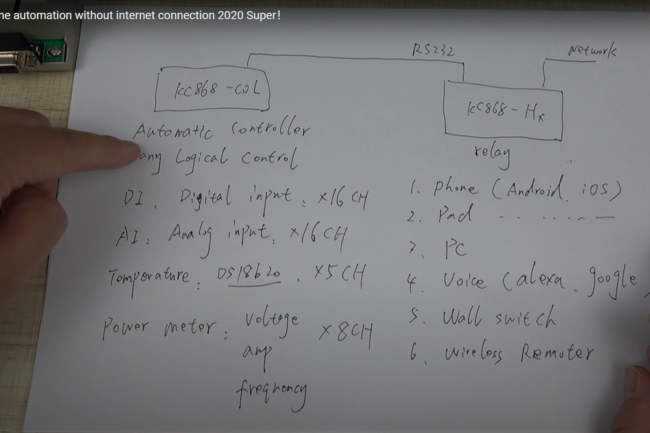 me automation without internet connection 2020 Super!
RS232
Network
KC868-COL
KC868-Hx
Automatic Controller
any Logical Control
DI. Digital input. ×16 CH
AI. Analog input. ×16 CH
Temperature: DS18b20. ×5 CH
Power meter: Voltage ×8CH
amp
frequency
relay
1. phone (Android. iOS)
2. Pad
3. PC
4. Voice (alexa. google
5. Wall switch
6. Wireless Remoter